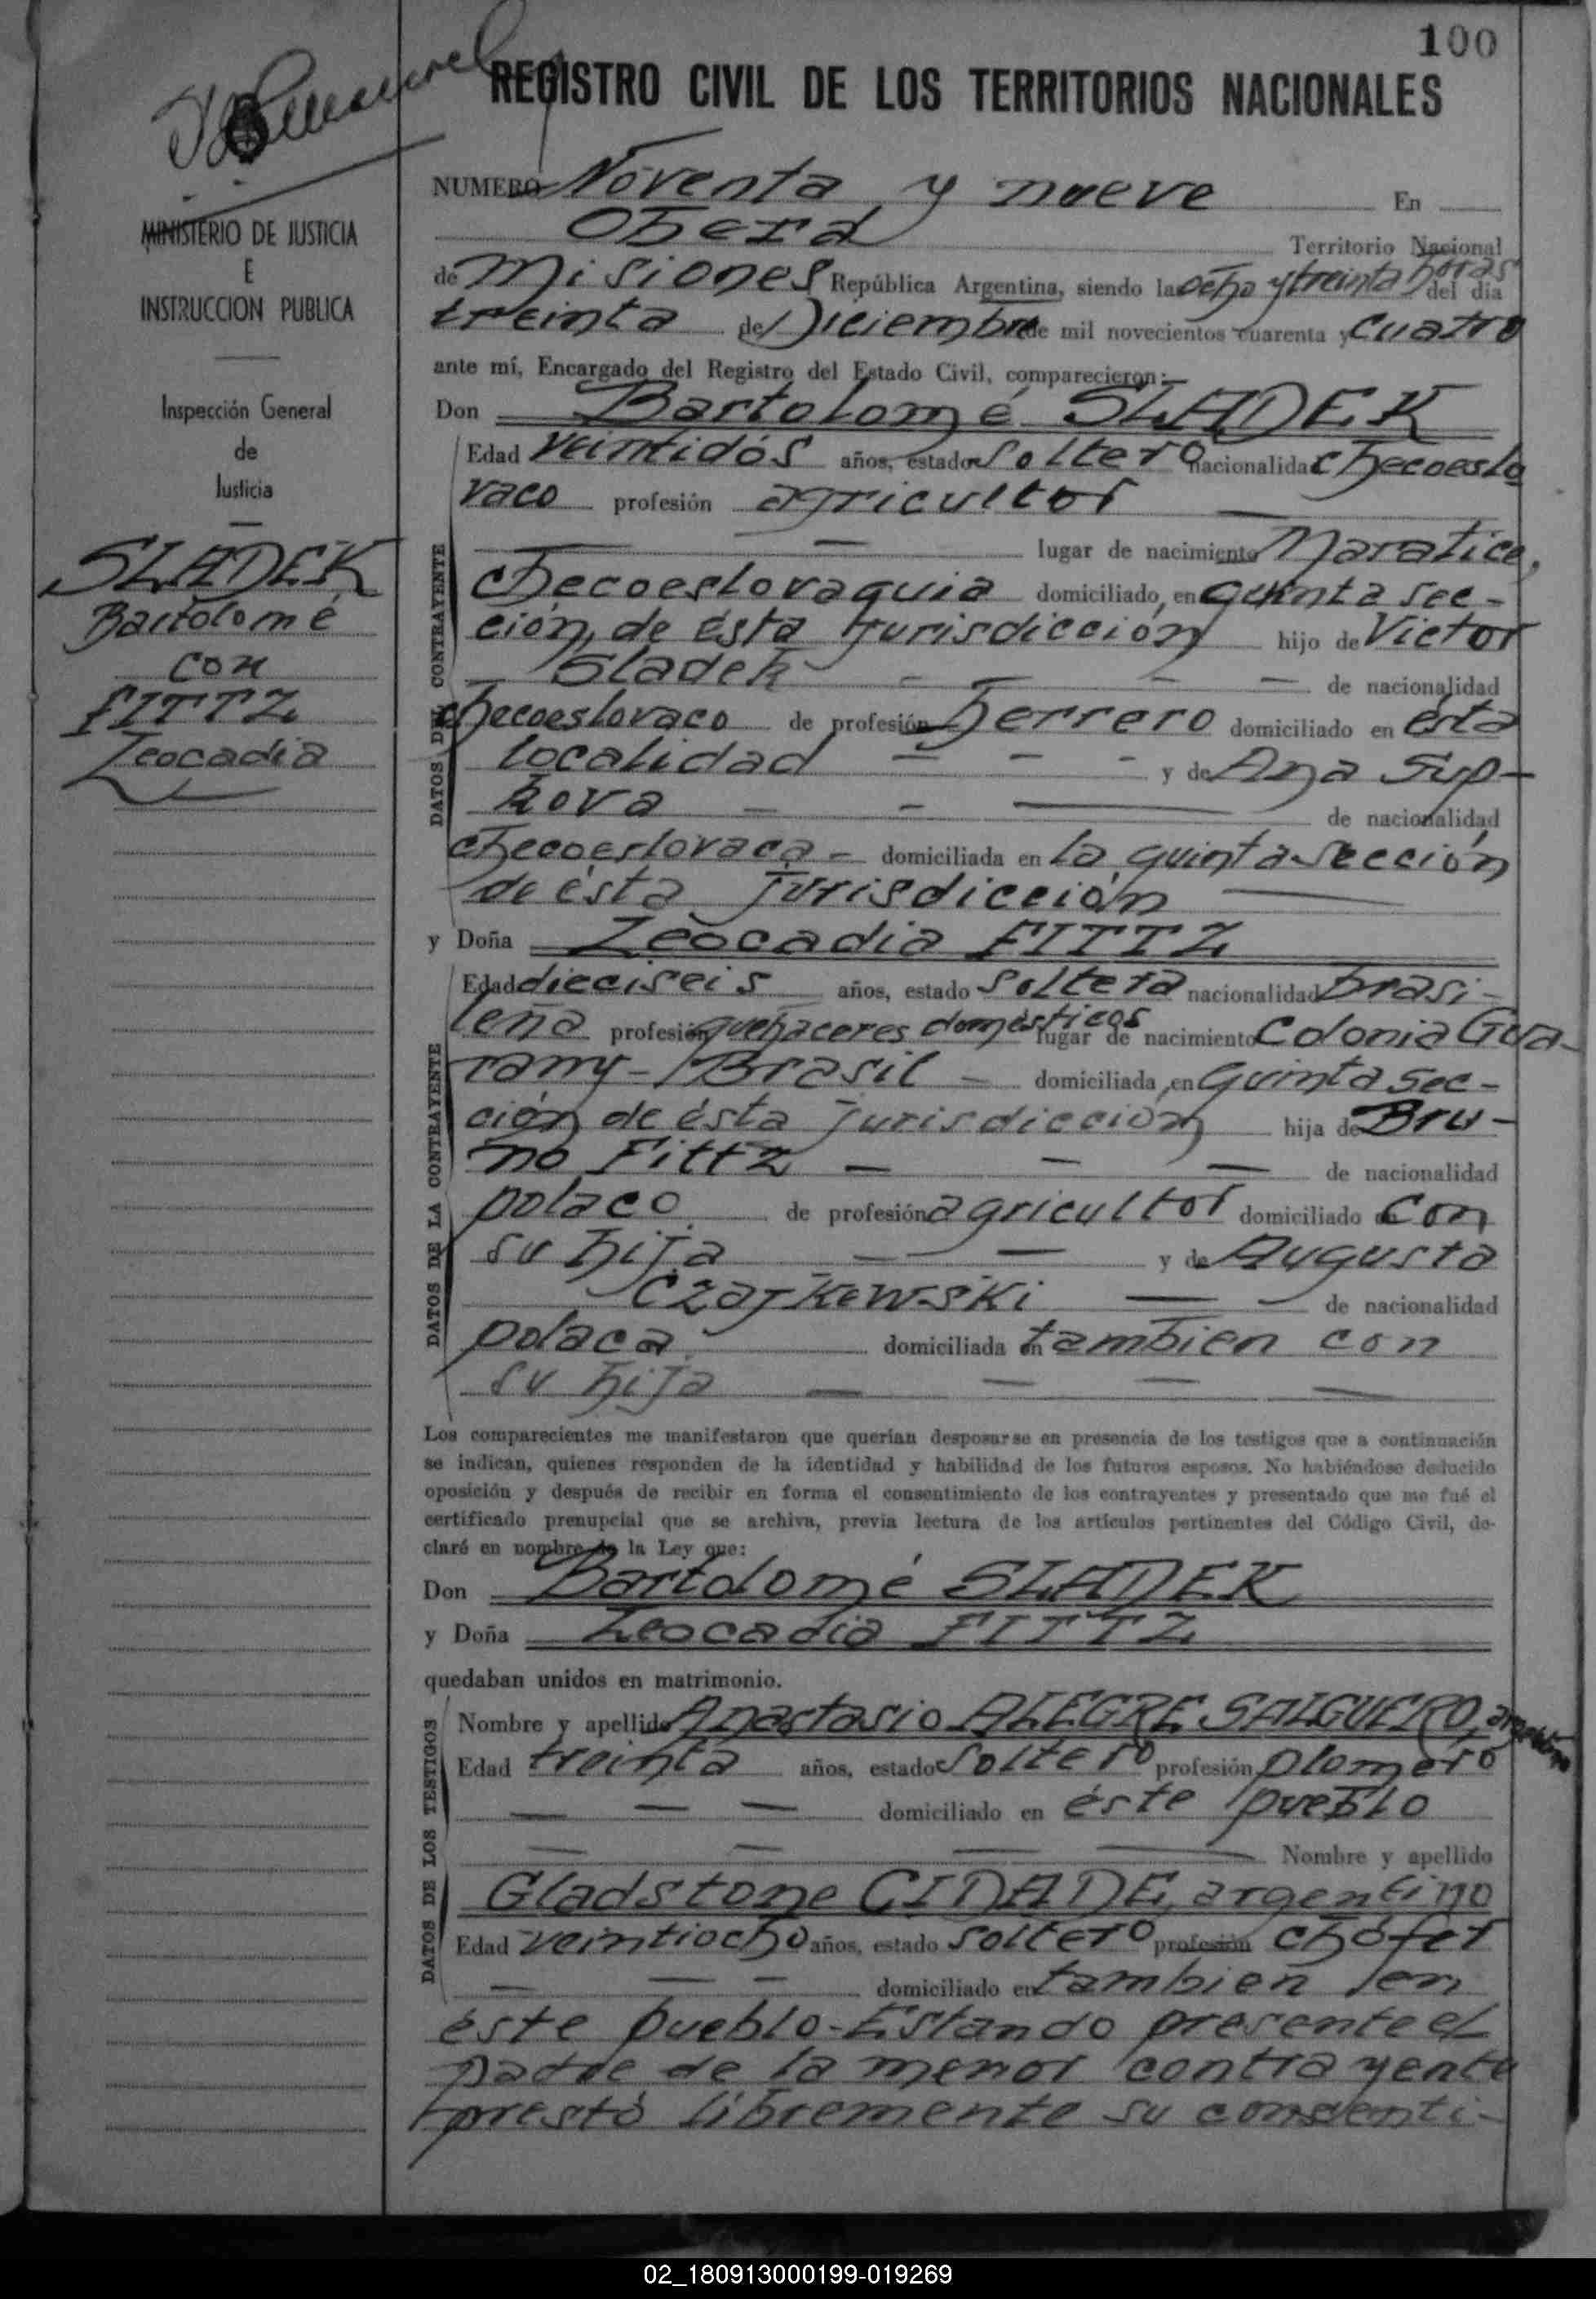 100
REGISTRO CIVIL DE LOS TERRITORIOS NACIONALES
MINISTERIO DE JUSTICIA
E
INSTRUCCION PUBLICA
Inspección General
de
Justicia
SLADEK
Bartolomé
con
FITTZ
Leocadia
NUMERO Noventa y nueve En
Oberá Territorio Nacional
de Misiones República Argentina, siendo las ocho y treinta horas del día
treinta de Diciembre de mil novecientos cuarenta y cuatro
ante mí, Encargado del Registro del Estado Civil, comparecieron:
Don Bartolomé SLADEK
DATOS DEL CONTRAYENTE
Edad veintidós años, estado soltero nacionalidad checoeslo
vaco profesión agricultor
lugar de nacimiento Maratice,
checoeslovaquia domiciliado en quinta sec-
ción de ésta jurisdicción hijo de Victor
Sladek de nacionalidad
checoeslovaco de profesión herrero domiciliado en ésta
localidad y de Ana Sup-
kova de nacionalidad
checoeslovaca domiciliada en la quinta sección
de ésta jurisdicción
y Doña Leocadia FITTZ
DATOS DE LA CONTRAYENTE
Edad dieciseis años, estado soltera nacionalidad brasi-
leña profesión quehaceres domésticos lugar de nacimiento Colonia Gua-
rany - Brasil domiciliada en quinta sec-
ción de ésta jurisdicción hija de Bru-
no Fittz de nacionalidad
polaco de profesión agricultor domiciliado con
su hija y de Augusta
Czajkewski de nacionalidad
polaca domiciliada en tambien con
su hija
Los comparecientes me manifestaron que querían desposarse en presencia de los testigos que a continuación
se indican, quienes responden de la identidad y habilidad de los futuros esposos. No habiéndose deducido
oposición y después de recibir en forma el consentimiento de los contrayentes y presentado que me fué el
certificado prenupcial que se archiva, previa lectura de los artículos pertinentes del Código Civil, de-
claré en nombre de la Ley que:
Don Bartolomé SLADEK
y Doña Leocadia FITTZ
quedaban unidos en matrimonio.
DATOS DE LOS TESTIGOS
Nombre y apellido Anastasio ALEGRE SALGUERO, argentino
Edad treinta años, estado soltero profesión plomero
domiciliado en éste pueblo
Nombre y apellido
Gladstone CIDADE, argentino
Edad veintiocho años, estado soltero profesión chófer
domiciliado en tambien en
éste pueblo - Estando presente el
padre de la menor contrayente
prestó libremente su consenti-
02_180913000199-019269